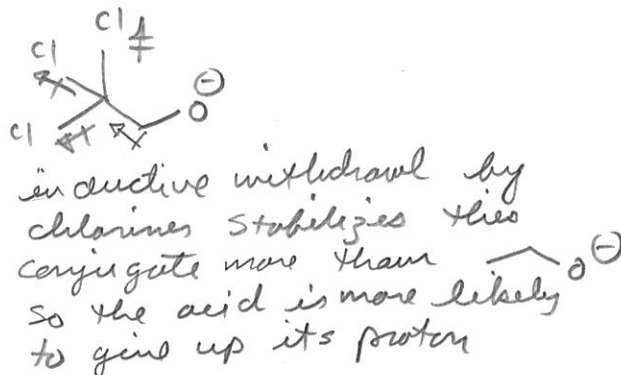 Cl
Cl
Cl
O ⊖
inductive withdrawl by
chlorines stabilizes this
conjugate more than O ⊖
so the acid is more likely
to give up its proton